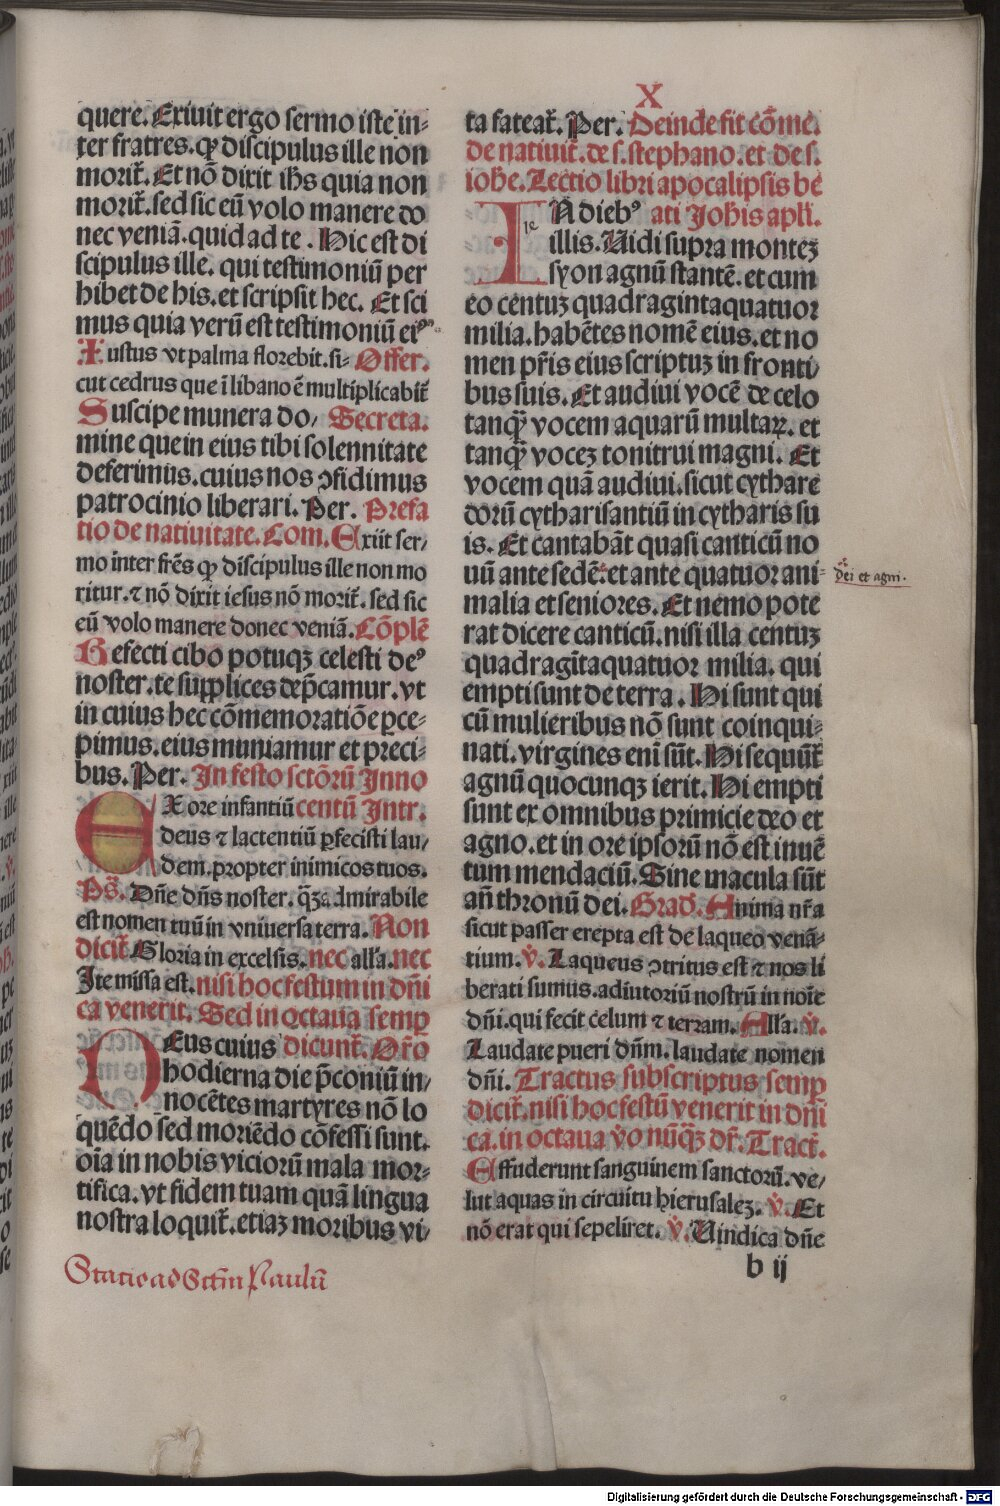 X
quere. Exiuit ergo sermo iste in-
ter fratres. qꝫ discipulus ille non
morit᷑. Et nõ dixit ihs quia non
morit᷑. sed sic eũ volo manere do
nec veniã. quid ad te. Hic est di
scipulus ille. qui testimoniũ per
hibet de his. et scripsit hec. Et sci
mus quia verũ est testimoniũ eiꝰ.
Iustus vt palma florebit. si- Offer.
cut cedrus que ĩ libano ẽ multiplicabit᷑
Suscipe munera do/ Secreta.
mine que in eius tibi solennitate
deferimus. cuius nos ꝯfidimus
patrocinio liberari. Per. Prefa
tio de natiuitate. Com. Exiit ser/
mo inter frẽs qꝫ discipulus ille non mo
ritur. ⁊ nõ dixit iesus nõ morit᷑. sed sic
eũ volo manere donec veniã. Cõplẽ
Refecti cibo potuqꝫ celesti deꝰ
noster. te supplices dep̃camur. vt
in cuius hec cõmemoratiõe ꝑce-
pimus. eius muniamur et preci-
bus. Per. In festo sctõrũ Inno
EX ore infantiũ centũ Intr.
deus ⁊ lactentiũ ꝑfecisti lau/
dem. propter inimicos tuos.
Ps̃. Dñe dñs noster. qꝫ admirabile
est nomen tuũ in vniuersa terra. Non
dicit᷑ Gloria in excelsis. nec alla. nec
Ite missa est. nisi hoc festum in dñi
ca venerit. Sed in octaua semꝑ
DEus cuius dicunt᷑. Orõ
hodierna die p̃coniũ in/
nocẽtes martyres nõ lo
quẽdo sed moriẽdo cõfessi sunt.
oĩa in nobis viciorũ mala mor-
tifica. vt fidem tuam quã lingua
nostra loquit᷑. etiaꝫ moribus vi/
Statio ad Sctm̃ Paulũ
ta fateat᷑. Per. Deinde fit cõme.
de natiuit᷑. de s. stephano. et de s.
iohe. Lectio libri apocalipsis be
IN diebꝰ ati Johis apli.
illis. Uidi supra monteꝫ
syon agnũ stantẽ. et cum
eo centuꝫ quadragintaquatuor
milia. habẽtes nomẽ eius. et no
men p̃ris eius scriptuꝫ in fronti/
bus suis. Et audiui vocẽ de celo
tanqꝫ vocem aquarũ multaꝝ. et
tanqꝫ voceꝫ tonitrui magni. Et
vocem quã audiui. sicut cythare
dorũ cytharisantiũ in cytharis su
is. Et cantabãt quasi canticũ no
uũ ante sedẽ. et ante quatuor ani-
dei et agni.
malia et seniores. Et nemo pote
rat dicere canticũ. nisi illa centuꝫ
quadragĩtaquatuor milia. qui
empti sunt de terra. Hi sunt qui
cũ mulieribus nõ sunt coinqui-
nati. virgines eni sũt. Hi sequũt᷑
agnũ quocunqꝫ ierit. Hi empti
sunt ex omnibus primicie deo et
agno. et in ore ipsorũ nõ est inuẽ
tum mendaciũ. Sine macula sũt
añ thronũ dei. Grad. Anima nr̃a
sicut passer erepta est de laqueo venã-
tium. v̓. Laqueus ꝯtritus est ⁊ nos li
berati sumus. adiutoriũ nostrũ in noĩe
dñi. qui fecit celum ⁊ terram. Alla. v̓.
Laudate pueri dñm. laudate nomen
dñi. Tractus subscriptus semꝑ
dicit᷑. nisi hoc festũ venerit in dñi
ca. in octaua ṽo nũqꝫ dr̃. Tract᷑.
Effuderunt sanguinem sanctorũ. ve/
lut aquas in circuitu hierusaleꝫ. v̓. Et
nõ erat qui sepeliret. v̓. Uindica dñe
b ij
Digitalisierung gefördert durch die Deutsche Forschungsgemeinschaft - DFG